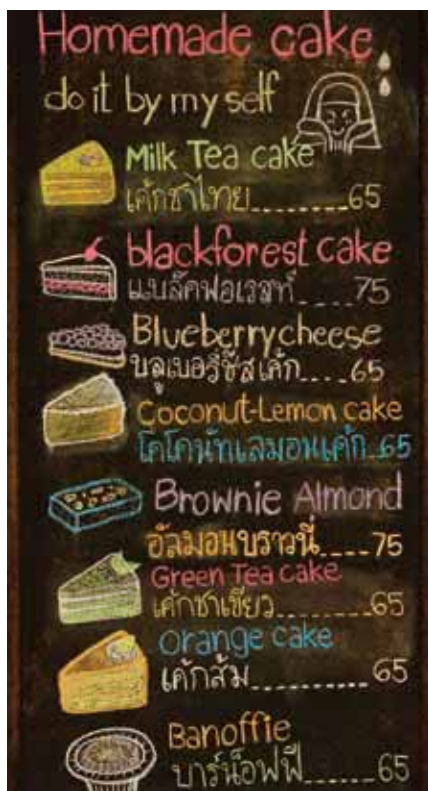 Homemade cake
do it by my self
Milk Tea cake
เค้กชาไทย........65
blackforest cake
แบล็คฟอเรสท์....75
Blueberrycheese
บลูเบอรี่ชีสเค้ก....65
Coconut-Lemon cake
โคโคนัทเลมอนเค้ก.65
Brownie Almond
อัลมอนบราวนี่....75
Green Tea cake
เค้กชาเขียว........65
orange cake
เค้กส้ม..........65
Banoffie
บาร์น็อฟฟี่......65